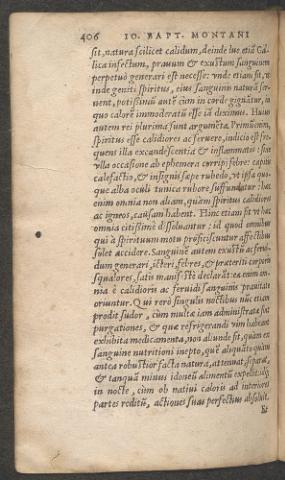 406 IO. BAPT. MONTANI
sit, natura scilicet calidum, deinde lue etiã Gal-
lica infectum, prauum & exustum sanguinem
perpetuò generari est necesse: vnde etiam fit, vt
inde geniti spiritus, eius sanguinis naturã ser-
uent, potissimũ autẽ cùm in corde gignãtur, in
quo calorẽ immoderatũ esse iã diximus. Huius
autem rei plurima sunt argumẽta. Primũ enim,
spiritus esse calidiores ac feruere, indicio est fre-
quens illa excandescentia & inflammatio: siue
vlla occasione ab ephemera corripi febre: capitis
calefactio, & insignis sæpe rubedo, vt ipsa quo-
que alba oculi tunica rubore suffundatur: hæc
enim omnia non aliam, quàm spiritus calidiores
ac igneos, causam habent. Hinc etiam fit vt hæc
omnia citissimè dissoluantur: id quod omnibus
qui à spirituum motu proficiscuntur affectibus
solet accidere. Sanguinẽ autem exustũ ac feruì-
dum generari, icteri, febres, & præteriti corporis
squalores, satis manifestè declarãt: ea enim om-
nia è calidioris ac feruidi sanguinis prauitate
oriuntur. Qui verò singulis noctibus nũc etiam
prodit sudor, cùm multæ iam administratæ sint
purgationes, & quæ refrigerandi vim habeant
exhibita medicamenta, non aliunde fit, quàm ex
sanguine nutritioni inepto, quẽ aliquãto quàm
antea robustior facta natura, attenuat, separat,
& tanquã minus idoneũ alimentũ expellit: idq;
in nocte, cùm ob natiui caloris ad interiores
partes reditũ, actiones suas perfectius absoluit.
Et